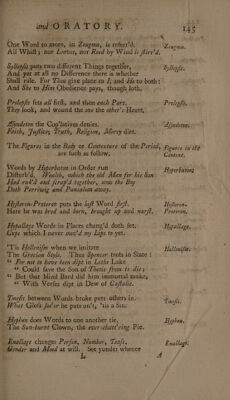 and ORATORY. 145
One Word to more, in Zeugma, is referr'd: Zeugma.
All Whist; nor Lotton, nor Reed by Wind is stirr'd.
Syllepsis puts two different Things together, Syllepsis.
And yet at all no Difference there is whether
Shall rule. For Thou give place to I, and He to both:
And She to Him Obedience pays, though loth.
Prolepsis sets all first, and then each Part. Prolepsis.
They look, and wound the one the other's Heart.
Asyndeton the Cop'latives denies. Asyndeton.
Faith, Justice, Truth, Religion, Mercy dies.
The Figures in the Body or Contexture of the Period, Figures in the
are such as follow. Context.
Words by Hyperbaton in Order run Hyperbaton
Disturb'd. Wealth, which the old Man for his Son
Had rak'd and scrap'd together, now the Boy
Doth Perriwig and Pantaloon away.
Hysteron-Proteron puts the last Word first. Hysteron-
Here he was bred and born, brought up and nurst. Proteron.
Hypallage Words in Places chang'd doth set. Hypallage.
Cups which I never mov'd my Lips to yet.
'Tis Hellenism when we imitate Hellenism.
The Grecian Style. Thus Spencer treats in State:
" For not to have been dipt in Lethe Lake
" Could save the Son of Thetis from to die;
" But that blind Bard did him immortal make,
" With Verses dipt in Dew of Castalie.
Tmesis between Words broke puts others in. Tmesis.
What Crime soe'er he puts on't, 'tis a Sin.
Hyphen does Words to one another tie. Hyphen.
The Sun-burnt Clown, the ever-chatt'ring Pie.
Enallage changes Person, Number, Tense, Enallage.
Gender and Mood at will. See yonder whence
L A